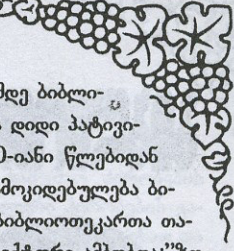 მდე ბიბლი-
დიდი პატივი-
0-იანი წლებიდან
მოკიდებულება ბი-
ბიბლიოთეკართა თა-